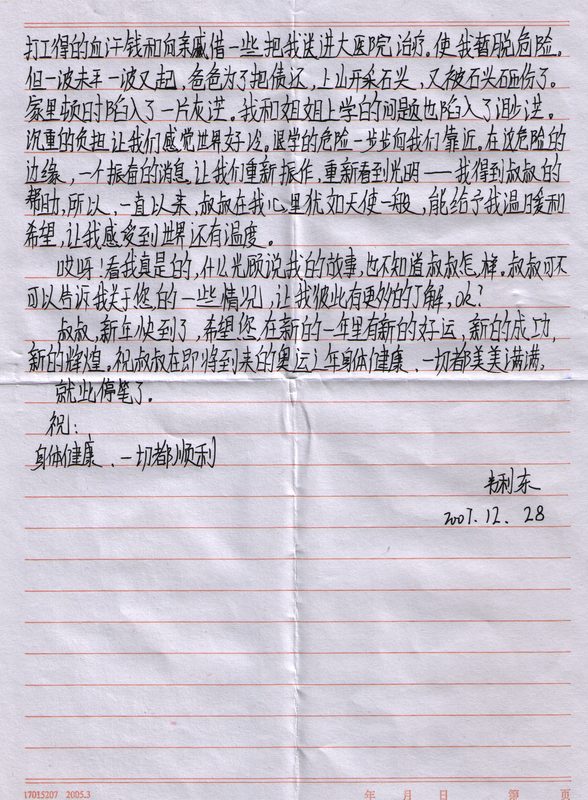 打工得的血汗钱和向亲戚借一些把我送进大医院治疗。使我暂脱危险。
但一波未平一波又起，爸爸为了把债还，上山开采石头，又被石头砸伤了。
家里顿时陷入了一片灰淇。我和姐姐上学的问题也陷入了泪淇。
沉重的负担让我们感觉世界好冷。退学的危险一步步向我们靠近。在这危险的
边缘，一个振奋的消息，让我们重新振作，重新看到光明——我得到叔叔的
帮助，所以，一直以来，叔叔在我心里犹如天使一般，能给予我温暖和
希望，让我感受到世界还有温度。
哎呀！看我真是的，什么光顾说我的故事，也不知道叔叔怎样。叔叔可不
可以告诉我关于您的一些情况，让我彼此有更多的了解，ok？
叔叔，新年快到了，希望您在新的一年里有新的好运，新的成功，
新的辉煌。祝叔叔在即将到来的奥运之年身体健康、一切都美美满满，
就此停笔了。
祝：
身体健康、一切都顺利
韦利东
2007.12.28
17015207 2005.3
年 月 日 第 页